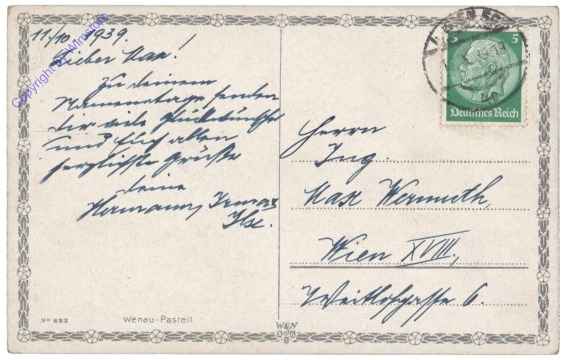 11/10. 1939.
Lieber Max!
Zu deinem
Namenstage senden
dir viele Glückwünsche
und Euch allen
herzlichste Grüße
deine
Hermann, Irma u.
Ilse.
Copyright by
5 5
Deutsches Reich
Herrn
Ing.
Max Wermuth,
Wien XVIII.,
Weitlofgasse 6.
No 653
Wenau-Pastell